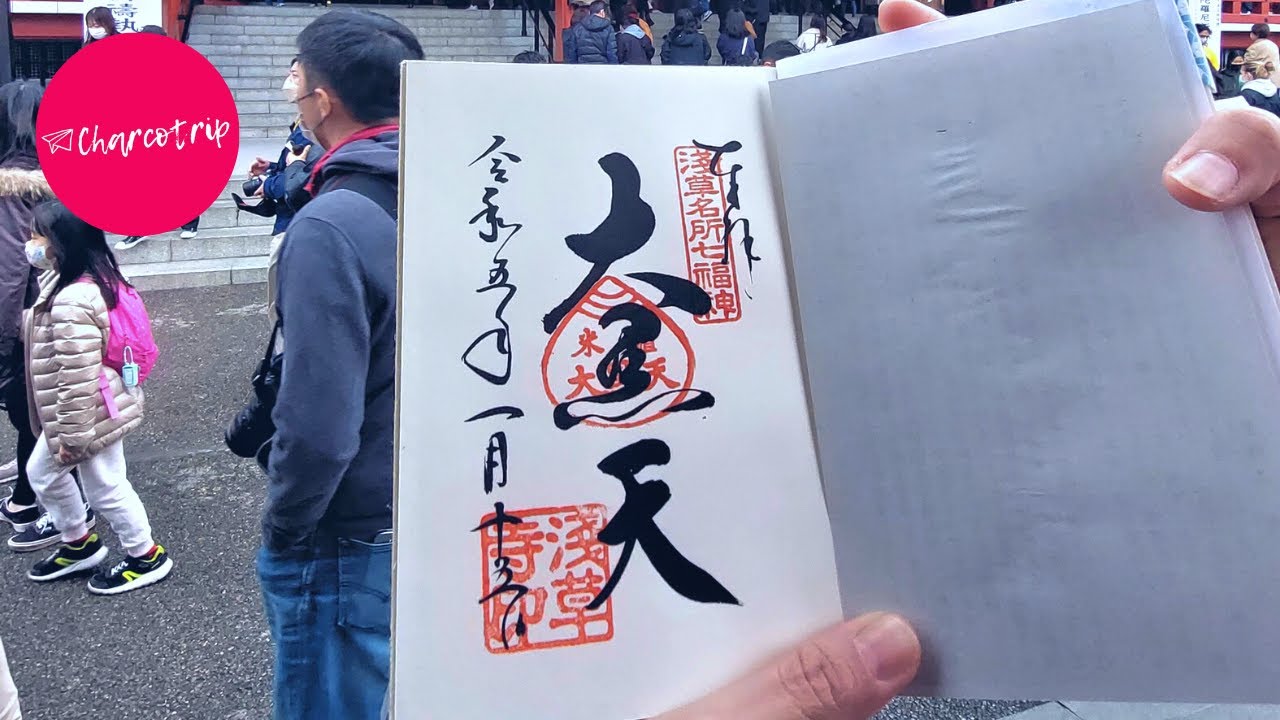 Charcotrip
奉拝
淺草名所七福神
大黒天
令和五年一月
淺草寺印
陀羅尼